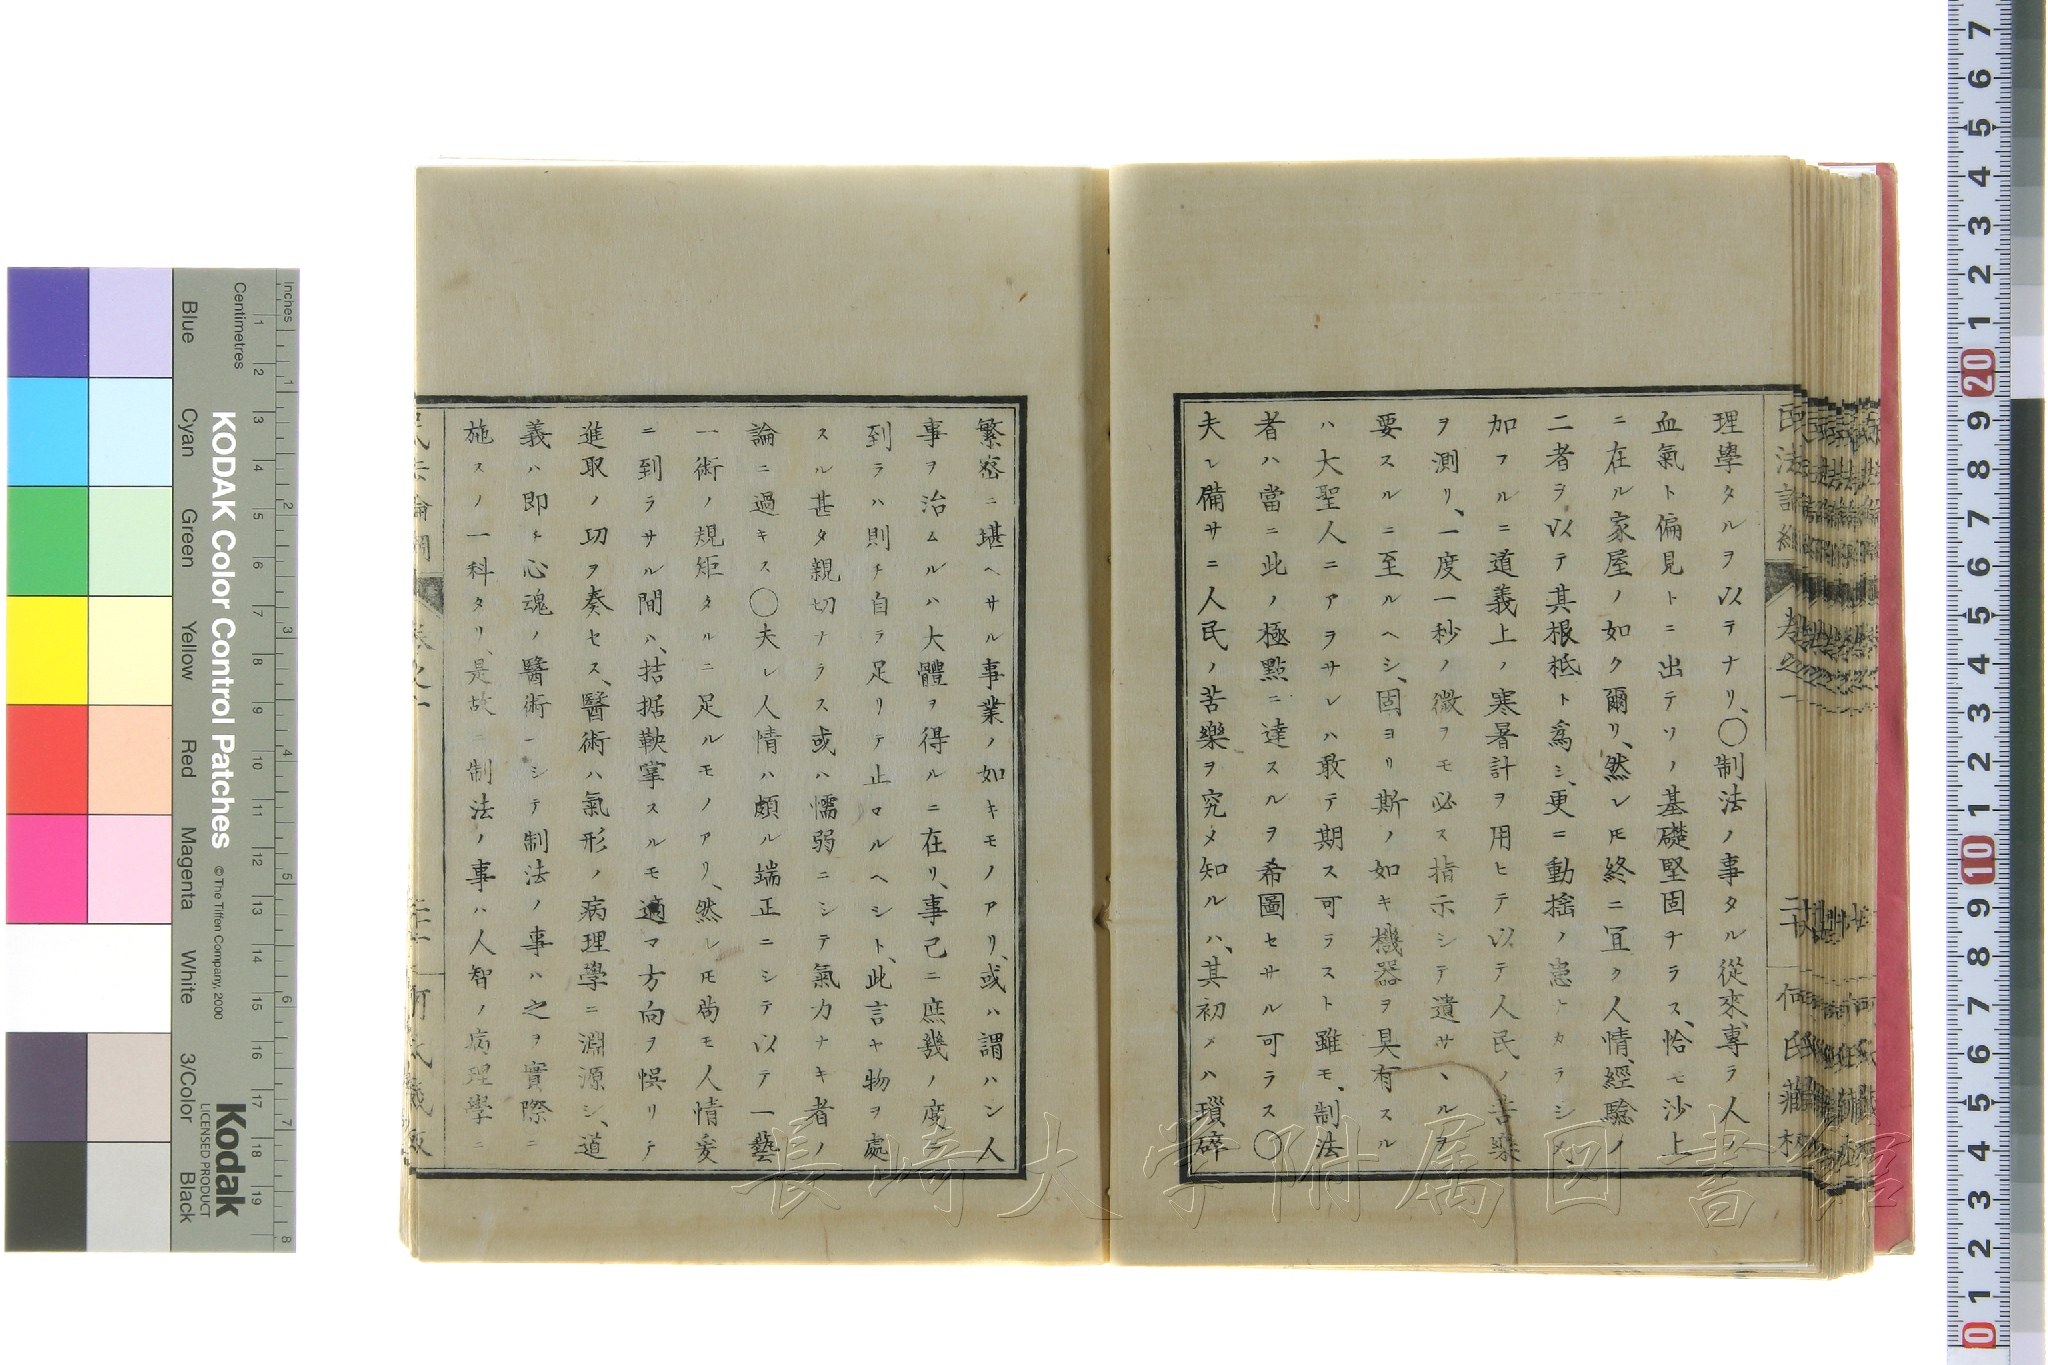 理學タルヲ以テナリ、〇制法ノ事タル從來、專ラ人
血氣ト偏見トニ出テソノ基礎堅固ナラス、恰モ沙上
ニ在ル家屋ノ如ク爾リ、然レ𪜈終ニ冝ク人情、經驗ノ
二者ヲ以テ其根柢ト爲シ、更ニ動揺ノ患ヒナカラシメ、
加フルニ道義上ノ寒暑計ヲ用ヒテ以テ人民ノ苦樂
ヲ測リ、一度一秒ノ微ヲモ必ス指示シテ遺サヽルヲ
要スルニ至ルヘシ、固ヨリ斯ノ如キ機器ヲ具有スル
ハ大聖人ニアラサレハ敢テ期ス可ラスト雖モ、制法
者ハ當ニ此ノ極點ニ達スルヲ希圖セサル可ラス〇
夫レ備サニ人民ノ苦樂ヲ究メ知ルハ、其初メハ瑣碎
繁密ニ堪ヘサル事業ノ如キモノアリ、或ハ謂ハン人
事ヲ治ムルハ大體ヲ得ルニ在リ、事已ニ庶幾ノ度ニ
到ラハ則チ自ラ足リテ止マルヘシト、此言ヤ物ヲ處
スル甚タ親切ナラス或ハ懦弱ニシテ氣力ナキ者ノ
論ニ過キス〇夫レ人情ハ頗ル端正ニシテ以テ一藝
一術ノ規矩タルニ足ルモノアリ、然レ𪜈苟モ人情爰
ニ到ラサル間ハ、拮据鞅掌スルモ適マ方向ヲ悞リテ
進取ノ功ヲ奏セス、醫術ハ氣形ノ病理學ニ淵源シ、道
義ハ即チ心魂ノ醫術ニシテ制法ノ事ハ之ヲ實際ニ
施スノ一科タリ、是故ニ制法ノ事ハ人智ノ病理學ニ
何氏藏板
長崎大学附属図書館
KODAK Color Control Patches
© The Tiffen Company, 2000
Kodak
LICENSED PRODUCT
Inches
Centimetres
Blue
Cyan
Green
Yellow
Red
Magenta
White
3/Color
Black